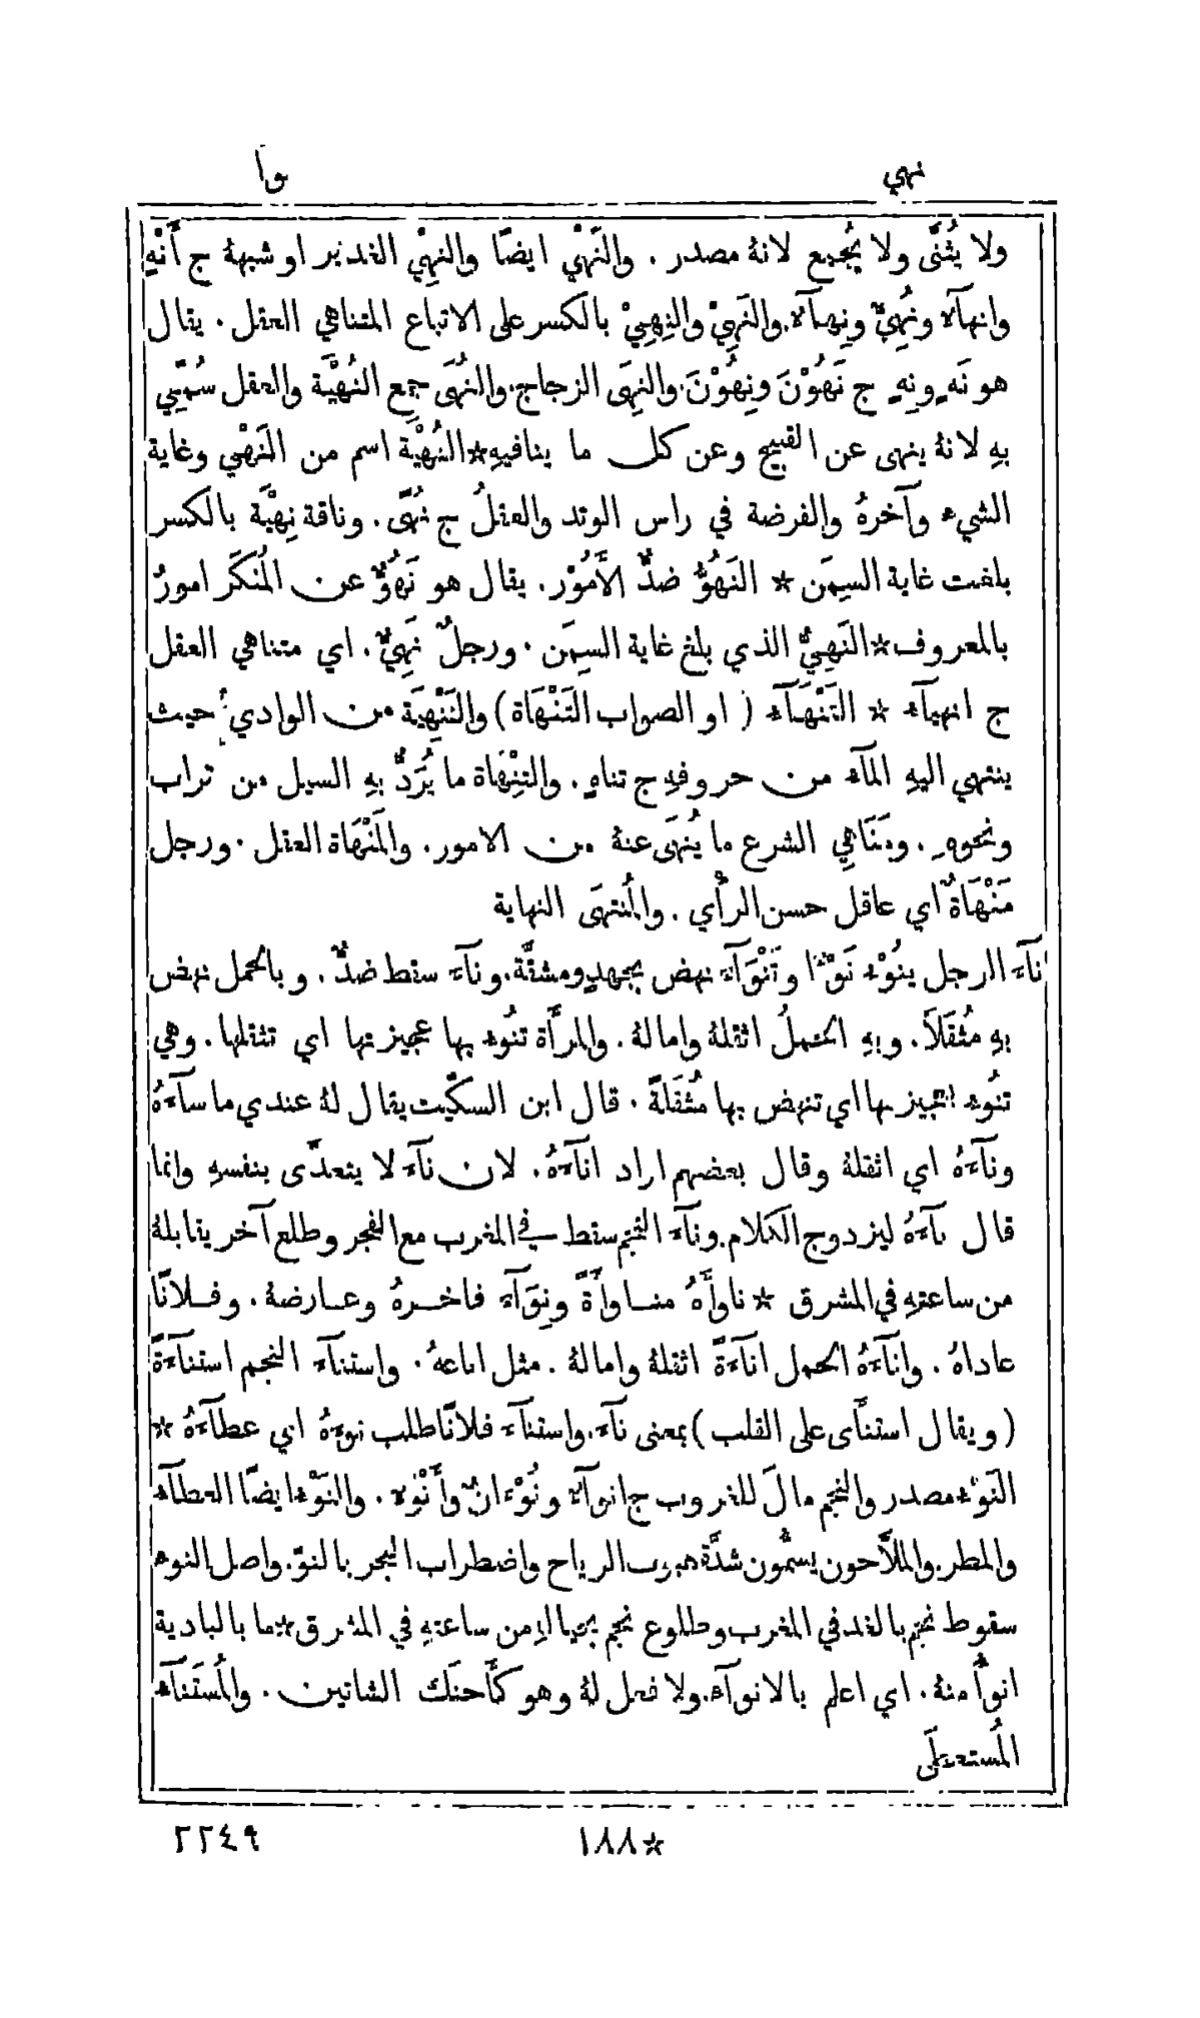 نهي
وأ
ولا يُثنَّى ولا يُجمع لانهُ مصدر . والنَهْي ايضًا والنِهْي الغدير او شبههُ ج أَنْهٍ
وانهآء ونُهِيٌّ ونِهآء. والنَهِيْ والنِهِيْ بالكسر على الاتباع المتناهي العقل . يقال
هو نَهٍ ونِهٍ ج نَهُوْنَ ونِهُوْنَ. والنِهَى الزجاج. والنُهَى جمع النُهْيَة والعقل سُمّيِ
بهِ لانهُ ينهى عن القبيح وعن كل ما ينافيهِ * النُهْيَة اسم من النَهْي وغاية
الشيء وآخرهُ والفرضة في راس الوتد والعقلُ ج نُهًى . وناقة نِهْيَة بالكسر
بلغت غاية السِمَن * النَهُوُّ ضدُّ الأَمُوْر . يقال هو نَهُوٌّ عن المُنكَر امورٌ
بالمعروف * النَهِيُّ الذي بلغ غاية السِمَن . ورجلٌ نَهِيٌّ . اي متناهي العقل
ج انهيآء * التَنْهَآء ( او الصواب التَنْهَاة ) والتَنْهِيَة من الوادي حيث
ينتهي اليهِ المآء من حروفهِ ج تناهٍ . والتِنْهَاة ما يُرَدُّ بهِ السيل من تراب
ونحوهِ . ومَنَاهِي الشرع ما يُنهَى عنهُ من الامور. والمَنْهَاة العقل . ورجل
مَنْهَاةٌ اي عاقل حسن الرأي . والمُنتهَى النهاية
نآء الرجل ينُوْء نَوْءًا وتَنْوَآء نهض بجهدٍ ومشقَّة. ونآء سقط ضدٌّ . وبالحمل نهض
بهِ مُثقَلاً . وبهِ الحملُ اثقلهُ وامالهُ . والمرأَة تنُوء بها عجيزتها اي تثقلها . وهي
تنُوء بعجيزتها اي تنهض بها مُثقَلةً . قال ابن السكّيت يقال لهُ عندي ما سآءهُ
ونآءهُ اي اثقلهُ وقال بعضهم اراد انآءهُ . لان نآء لا يتعدَّى بنفسهِ وانما
قال نآءهُ ليزدوج الكلام. ونآء النجم سقط في المغرب مع الفجر وطلع آخر يقابلهُ
من ساعتهِ في المشرق * ناوأَهُ مناوأَةً ونِوَآء فاخرهُ وعارضهُ . وفلانًا
عاداهُ . وانآءهُ الحمل انآءَةً اثقلهُ وامالهُ . مثل اناعهُ . واستنآء النجم استنآءَةً
( ويقال استنأَى على القلب ) بمعنى نآء. واستنآء فلانًا طلب نوءهُ اي عطآءهُ *
النَوْء مصدر والنجم مالَ للغروب ج انوآء ونُوْءانٌ وأَنْوُء . والنَوْء ايضًا العطآء
والمطر. والملاَّحون يسمُّون شدَّة هبوب الرياح واضطراب البحر بالنوّ. واصل النوء
سقوط نجم بالغد في المغرب وطلوع نجم بحيالهِ من ساعتهِ في المشرق * ما بالبادية
انوأُ منهُ . اي اعلم بالانوآء. ولا فعل لهُ وهو كأَحنَك الشاتين . والمُستَنآء
المُستعطَى
*١٨٨
٢٢٤٩